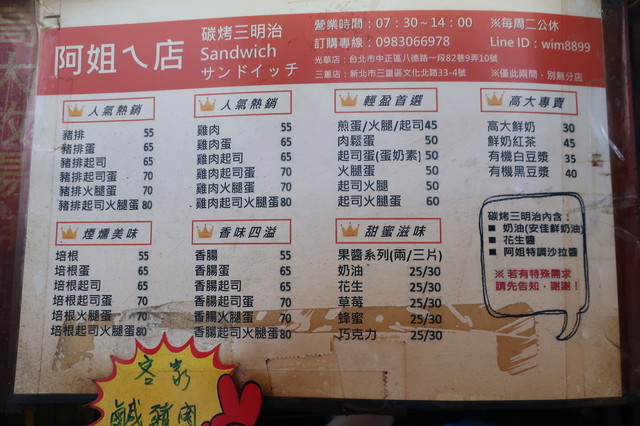 阿姐ㄟ店
碳烤三明治
Sandwich
サンドイッチ
營業時間：07：30～14：00
※每周二公休
訂購專線：0983066978
Line ID：wim8899
光華店：台北市中正區八德路一段82巷9弄10號
三重店：新北市三重區文化北路33-4號
※僅此兩間，別無分店
人氣熱銷
豬排 55
豬排蛋 65
豬排起司 65
豬排起司蛋 70
豬排火腿蛋 70
豬排起司火腿蛋80
人氣熱銷
雞肉 55
雞肉蛋 65
雞肉起司 65
雞肉起司蛋 70
雞肉火腿蛋 70
雞肉起司火腿蛋80
輕盈首選
煎蛋/火腿/起司45
肉鬆蛋 50
起司蛋(蛋奶素) 50
火腿蛋 50
起司火腿 50
起司火腿蛋 60
高大專賣
高大鮮奶 30
鮮奶紅茶 45
有機白豆漿 35
有機黑豆漿 40
煙燻美味
培根 55
培根蛋 65
培根起司 65
培根起司蛋 70
培根火腿蛋 70
培根起司火腿蛋80
香味四溢
香腸 55
香腸蛋 65
香腸起司 65
香腸起司蛋 70
香腸火腿蛋 70
香腸起司火腿蛋80
甜蜜滋味
果醬系列(兩/三片)
奶油 25/30
花生 25/30
草莓 25/30
蜂蜜 25/30
巧克力 25/30
碳烤三明治內含：
■ 奶油(安佳鮮奶油)
■ 花生醬
■ 阿姐特調沙拉醬
※ 若有特殊需求
請先告知，謝謝！
客家
鹹豬肉